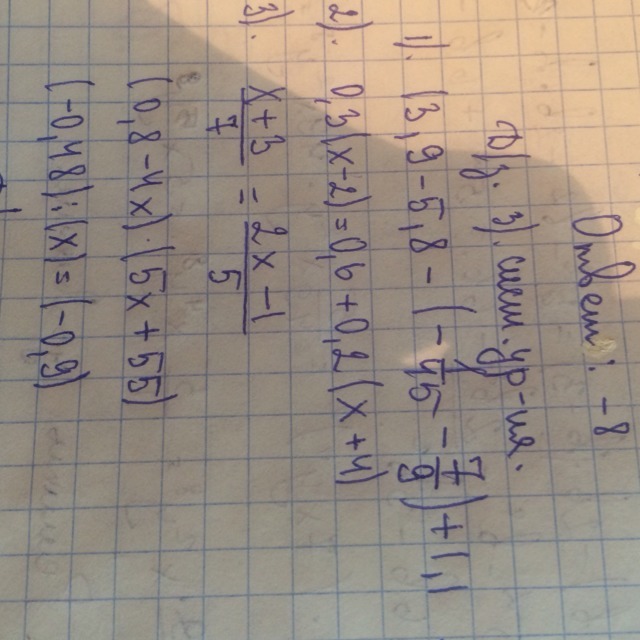 Ответ: -8
д/з. э). реш. ур-ия.
1). (3,9-5,8-(-4/15-7/9)+1,1
2). 0,3(x-2)=0,6+0,2(x+4)
3). x+3/7 = 2x-1/5
(0,8-4x)·(5x+55)
(-0,48):(x)=(-0,9)